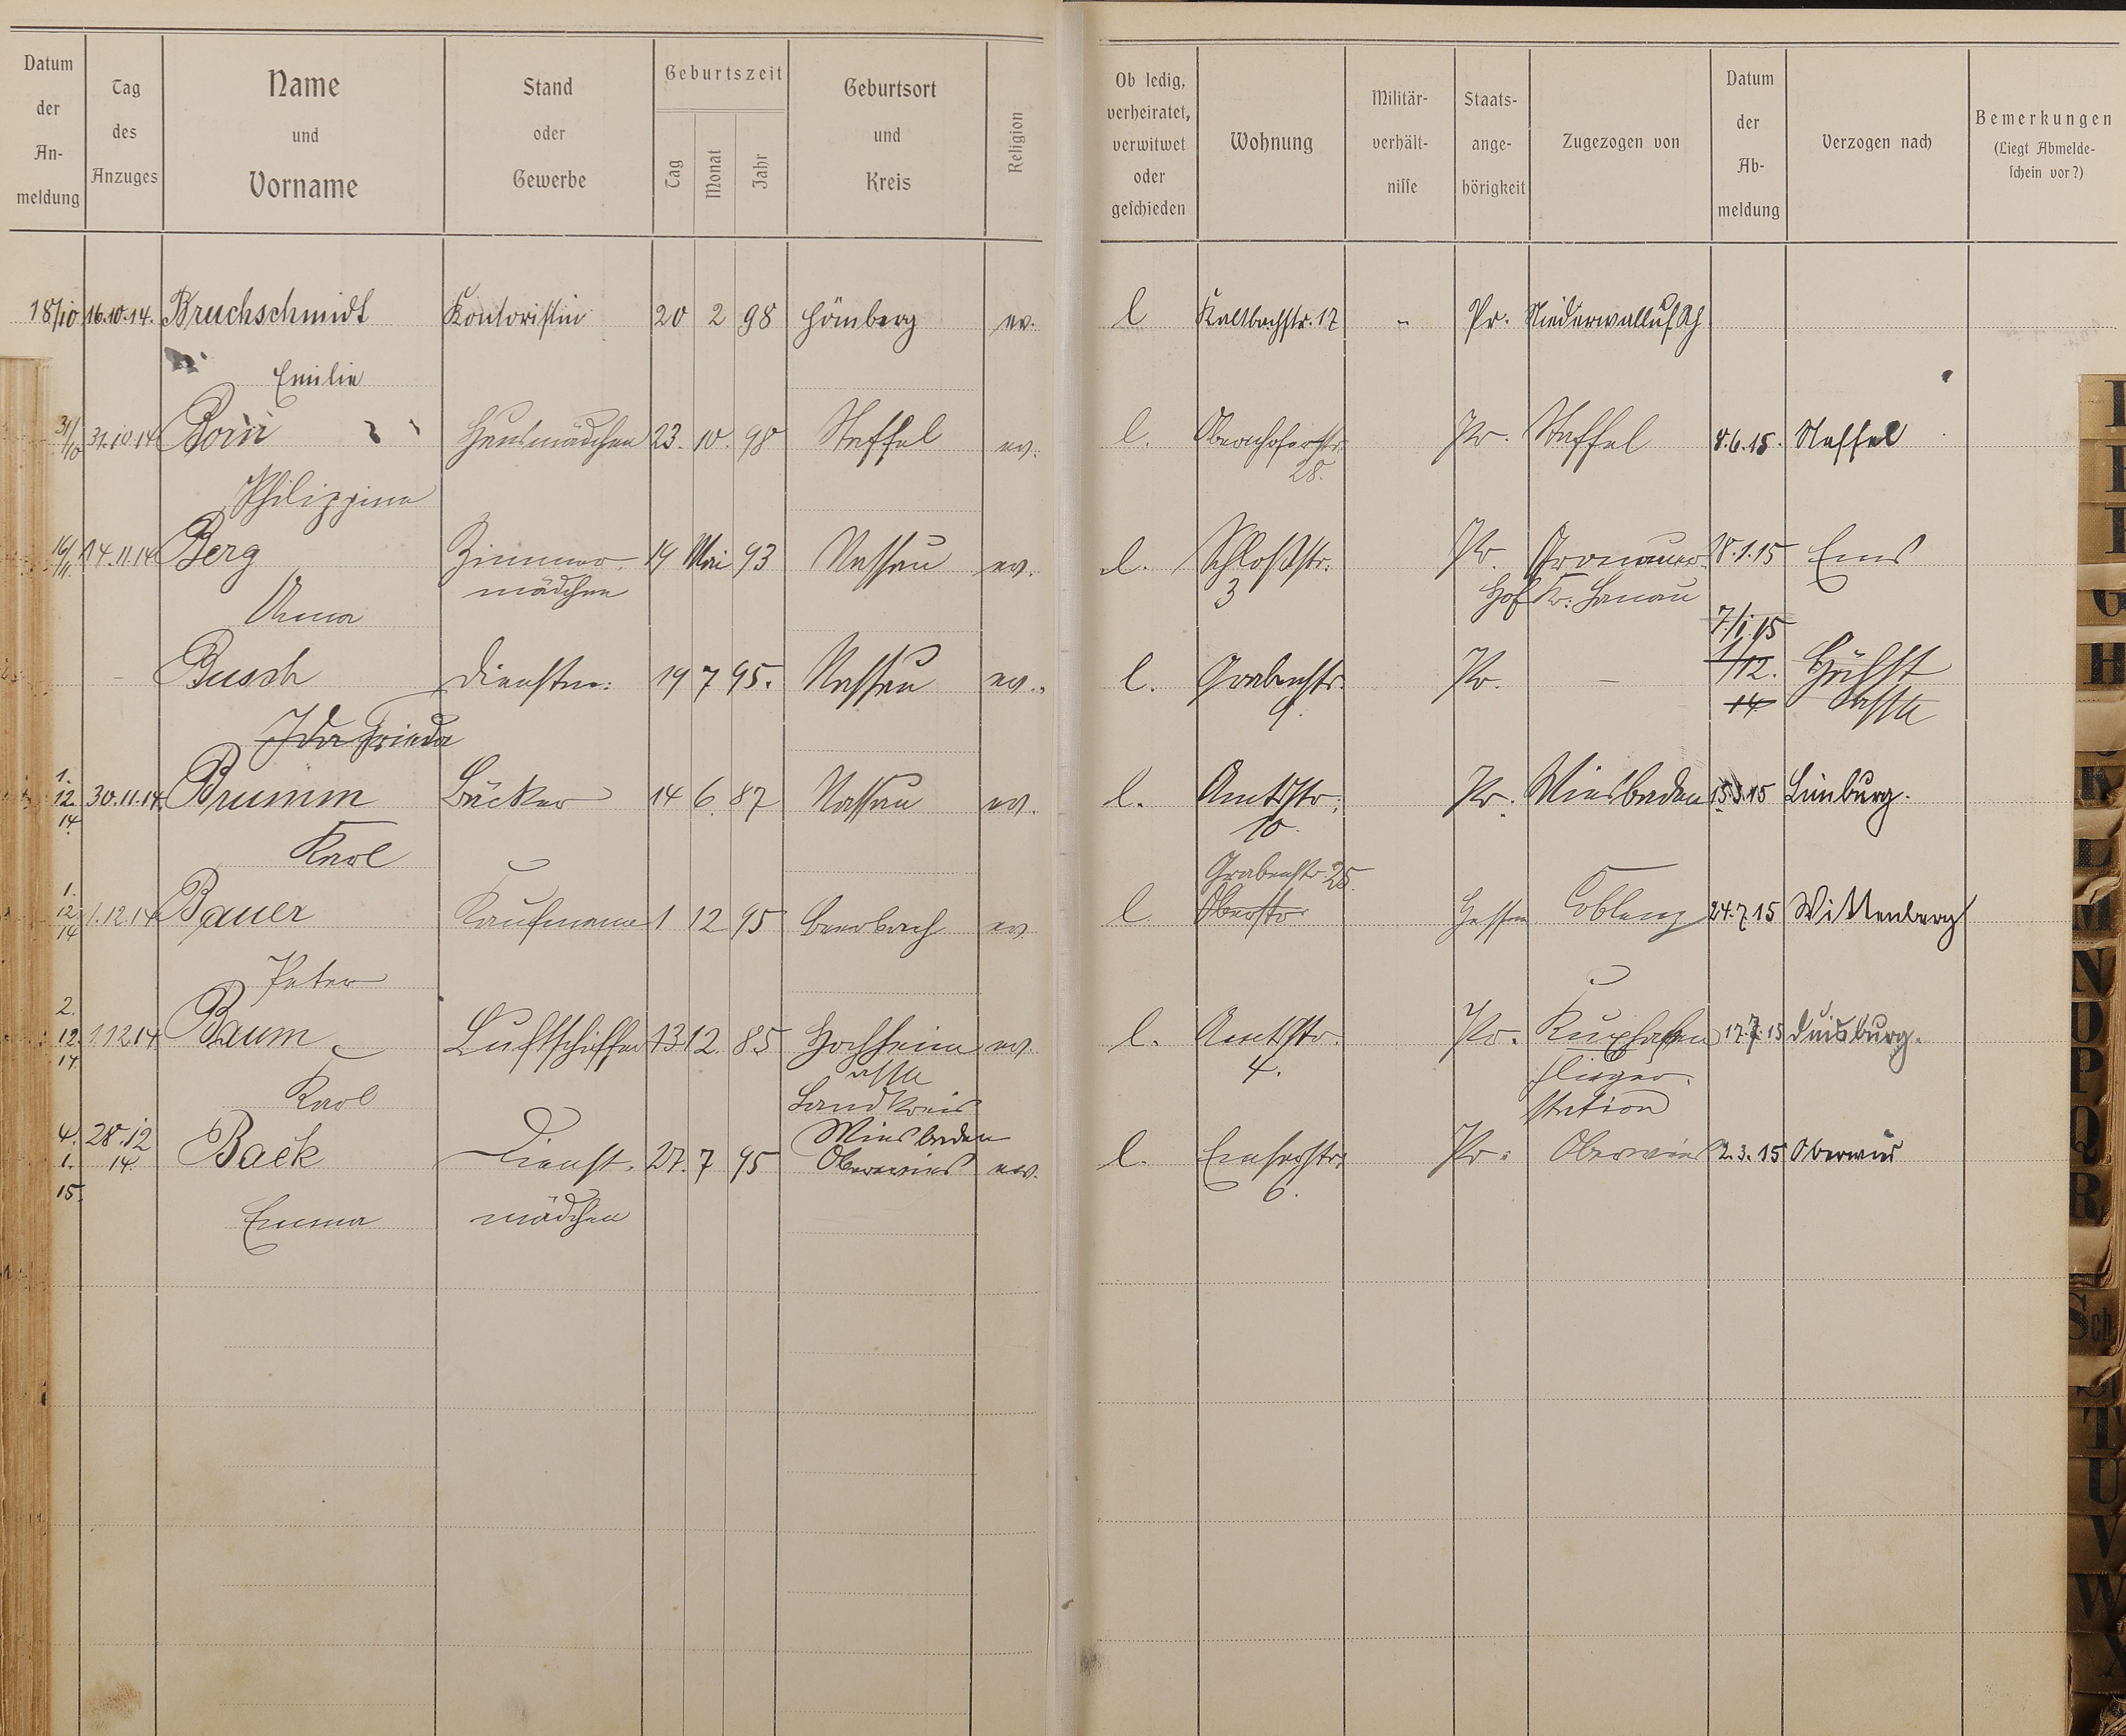 Datum der Anmeldung | Tag des Anzuges | Name und Vorname | Stand oder Gewerbe | Geburtszeit Tag Monat Jahr | Geburtsort und Kreis | Religion | Ob ledig, verheiratet, verwitwet oder geschieden | Wohnung | Militärverhältnisse | Staatsangehörigkeit | Zugezogen von | Datum der Abmeldung | Verzogen nach | Bemerkungen (Liegt Abmeldeschein vor?)
18/10 16.10.14. Bruchschmidt Kontoristin 20 2 98 Hömberg ev. l Kaltbachstr. 17 - Pr. Niederwalluf
Emilie
31/10 31.10.14 Born Hausmädchen 23. 10. 98 Staffel ev. l. Obernhoferstr. Pr. Staffel 8.6.15. Staffel
28.
Philippine
16/11 14.11.14 Berg Zimmer- 19 Mai 93 Nassau ev. l. Schloßstr. Pr. Gronauer 8.1.15 Ems
mädchen 3 Hof Kr. Hanau
Anna
7/1.15
Busch Dienstm: 19 7 95. Nassau ev. l. Grabenstr. Pr. – 1/12. Höchst
9. 14
Ida Frieda
1. 12. 14 30.11.14 Brumm Bäcker 14 6. 87 Nassau ev. l. Amtsstr. Pr. Wiesbaden 15.3.15 Limburg.
10.
Karl
Grabenstr. 25.
1. 12 14 1.12.14 Bauer Kaufmann 1 12 95 Beerbach ev. l. Oberstr. Hessen Coblenz 24.7.15 Wittenberg
Peter
2. 12. 14. 1.12.14 Baum Luftschiffer 13 12. 85 Hochheim ev. l. Amtsstr. Pr. Kuxhafen 17.7.15 Duisburg.
4. Flieger-
Karl Landkreis station
Wiesbaden
4. 1. 15. 28.12 14. Back Dienst- 27. 7 95 Oberwies ev. l. Emserstr. Pr. Oberwies 2.3.15 Oberwies
6.
Emma mädchen
G
H
K
L
M
N
O
P
Q
R
Sch
T
U
V
W
X